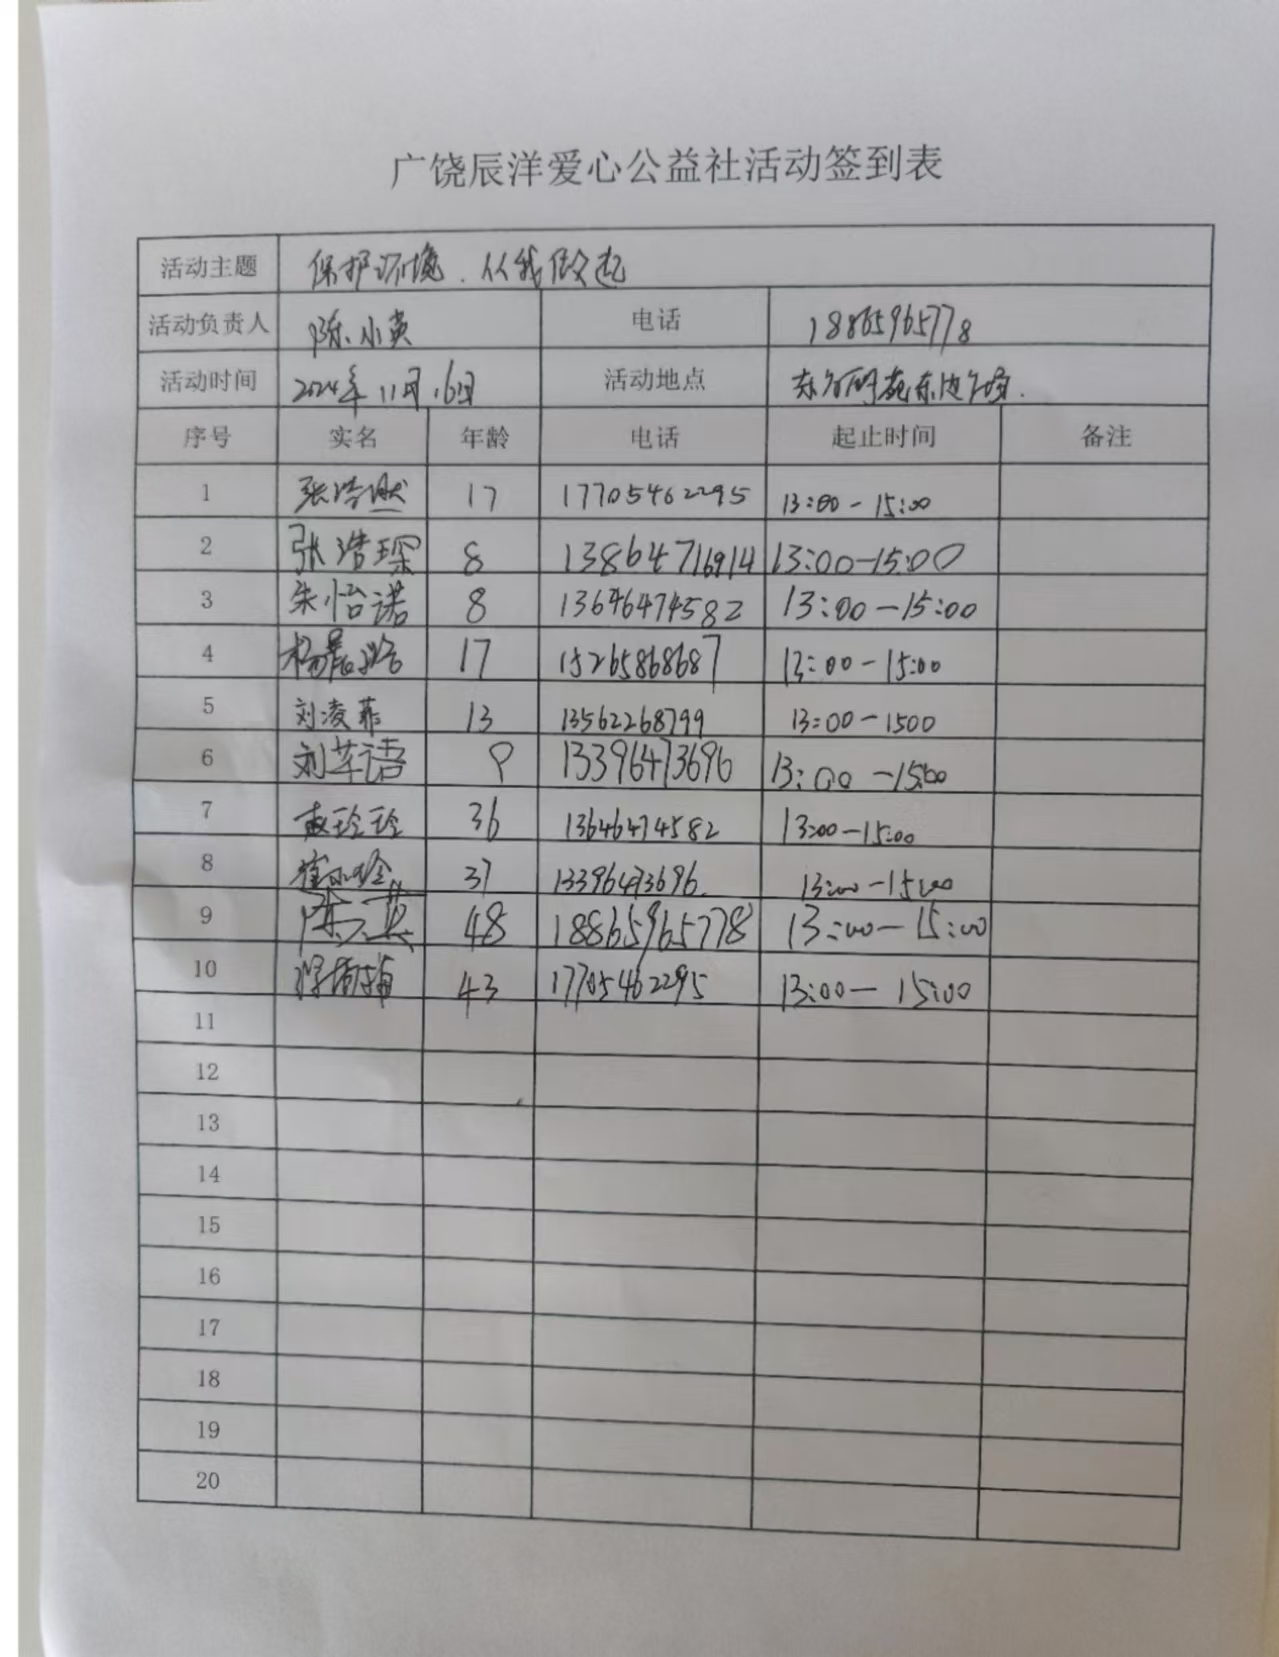 广饶辰洋爱心公益社活动签到表
活动主题 保护环境.从我做起
活动负责人 陈小英 电话 18865965778
活动时间 2024年11月16日 活动地点
序号 实名 年龄 电话 起止时间 备注
1 张浩然 17 17705462295 13:00-15:00
2 张浩琛 8 13864716914 13:00-15:00
3 朱怡诺 8 13646474582 13:00-15:00
4 17 15265868687 13:00-15:00
5 刘凌菲 13 13562268799 13:00-1500
6 9 13396473696 13:00-15:00
7 赵玲玲 36 13646474582 13:00-15:00
8 37 13396473696. 13:00-15:00
9 陈小英 48 18865965778 13:00-15:00
10 43 17705462295 13:00-15:00
11
12
13
14
15
16
17
18
19
20